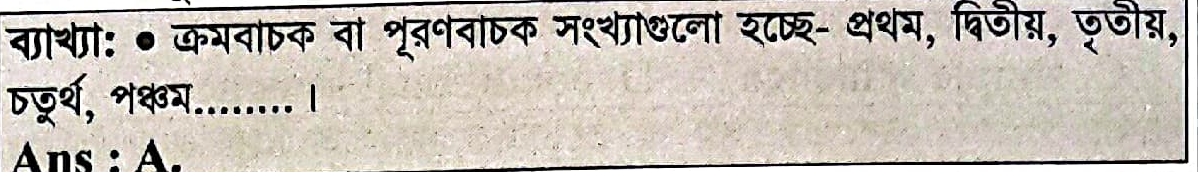 ব্যাখ্যা: ● ক্রমবাচক বা পূরণবাচক সংখ্যাগুলো হচ্ছে- প্রথম, দ্বিতীয়, তৃতীয়,
চতুর্থ, পঞ্চম........ ।
Ans : A.